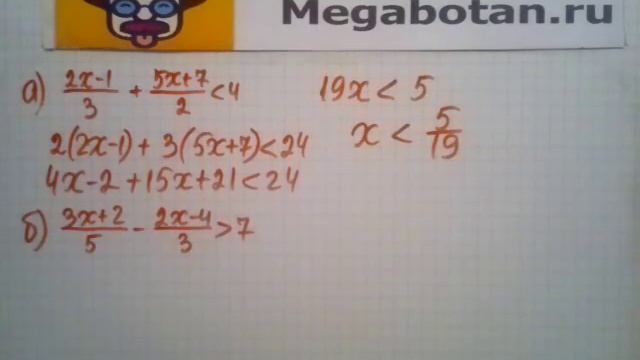 Megabotan.ru
а) (2x-1)/3 + (5x+7)/2 < 4
2(2x-1) + 3(5x+7) < 24
4x-2+15x+21 < 24
19x < 5
x < 5/19
б) (3x+2)/5 - (2x-4)/3 > 7